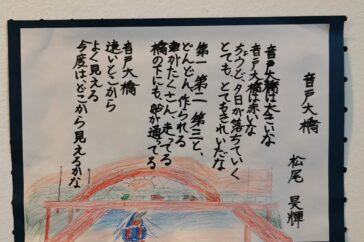 音戸大橋
松尾 晃輝
音戸大橋は大きいな
音戸大橋は赤いな
ちょうど夕日が落ちていく
とても、とてもきれいだな
第一、第二、第三と、
どんどん、作られる
車がたくさん、走ってる
橋の下にも、船が通ってる
音戸大橋
遠いどこから
よく見える
今度はどこから見えるかな